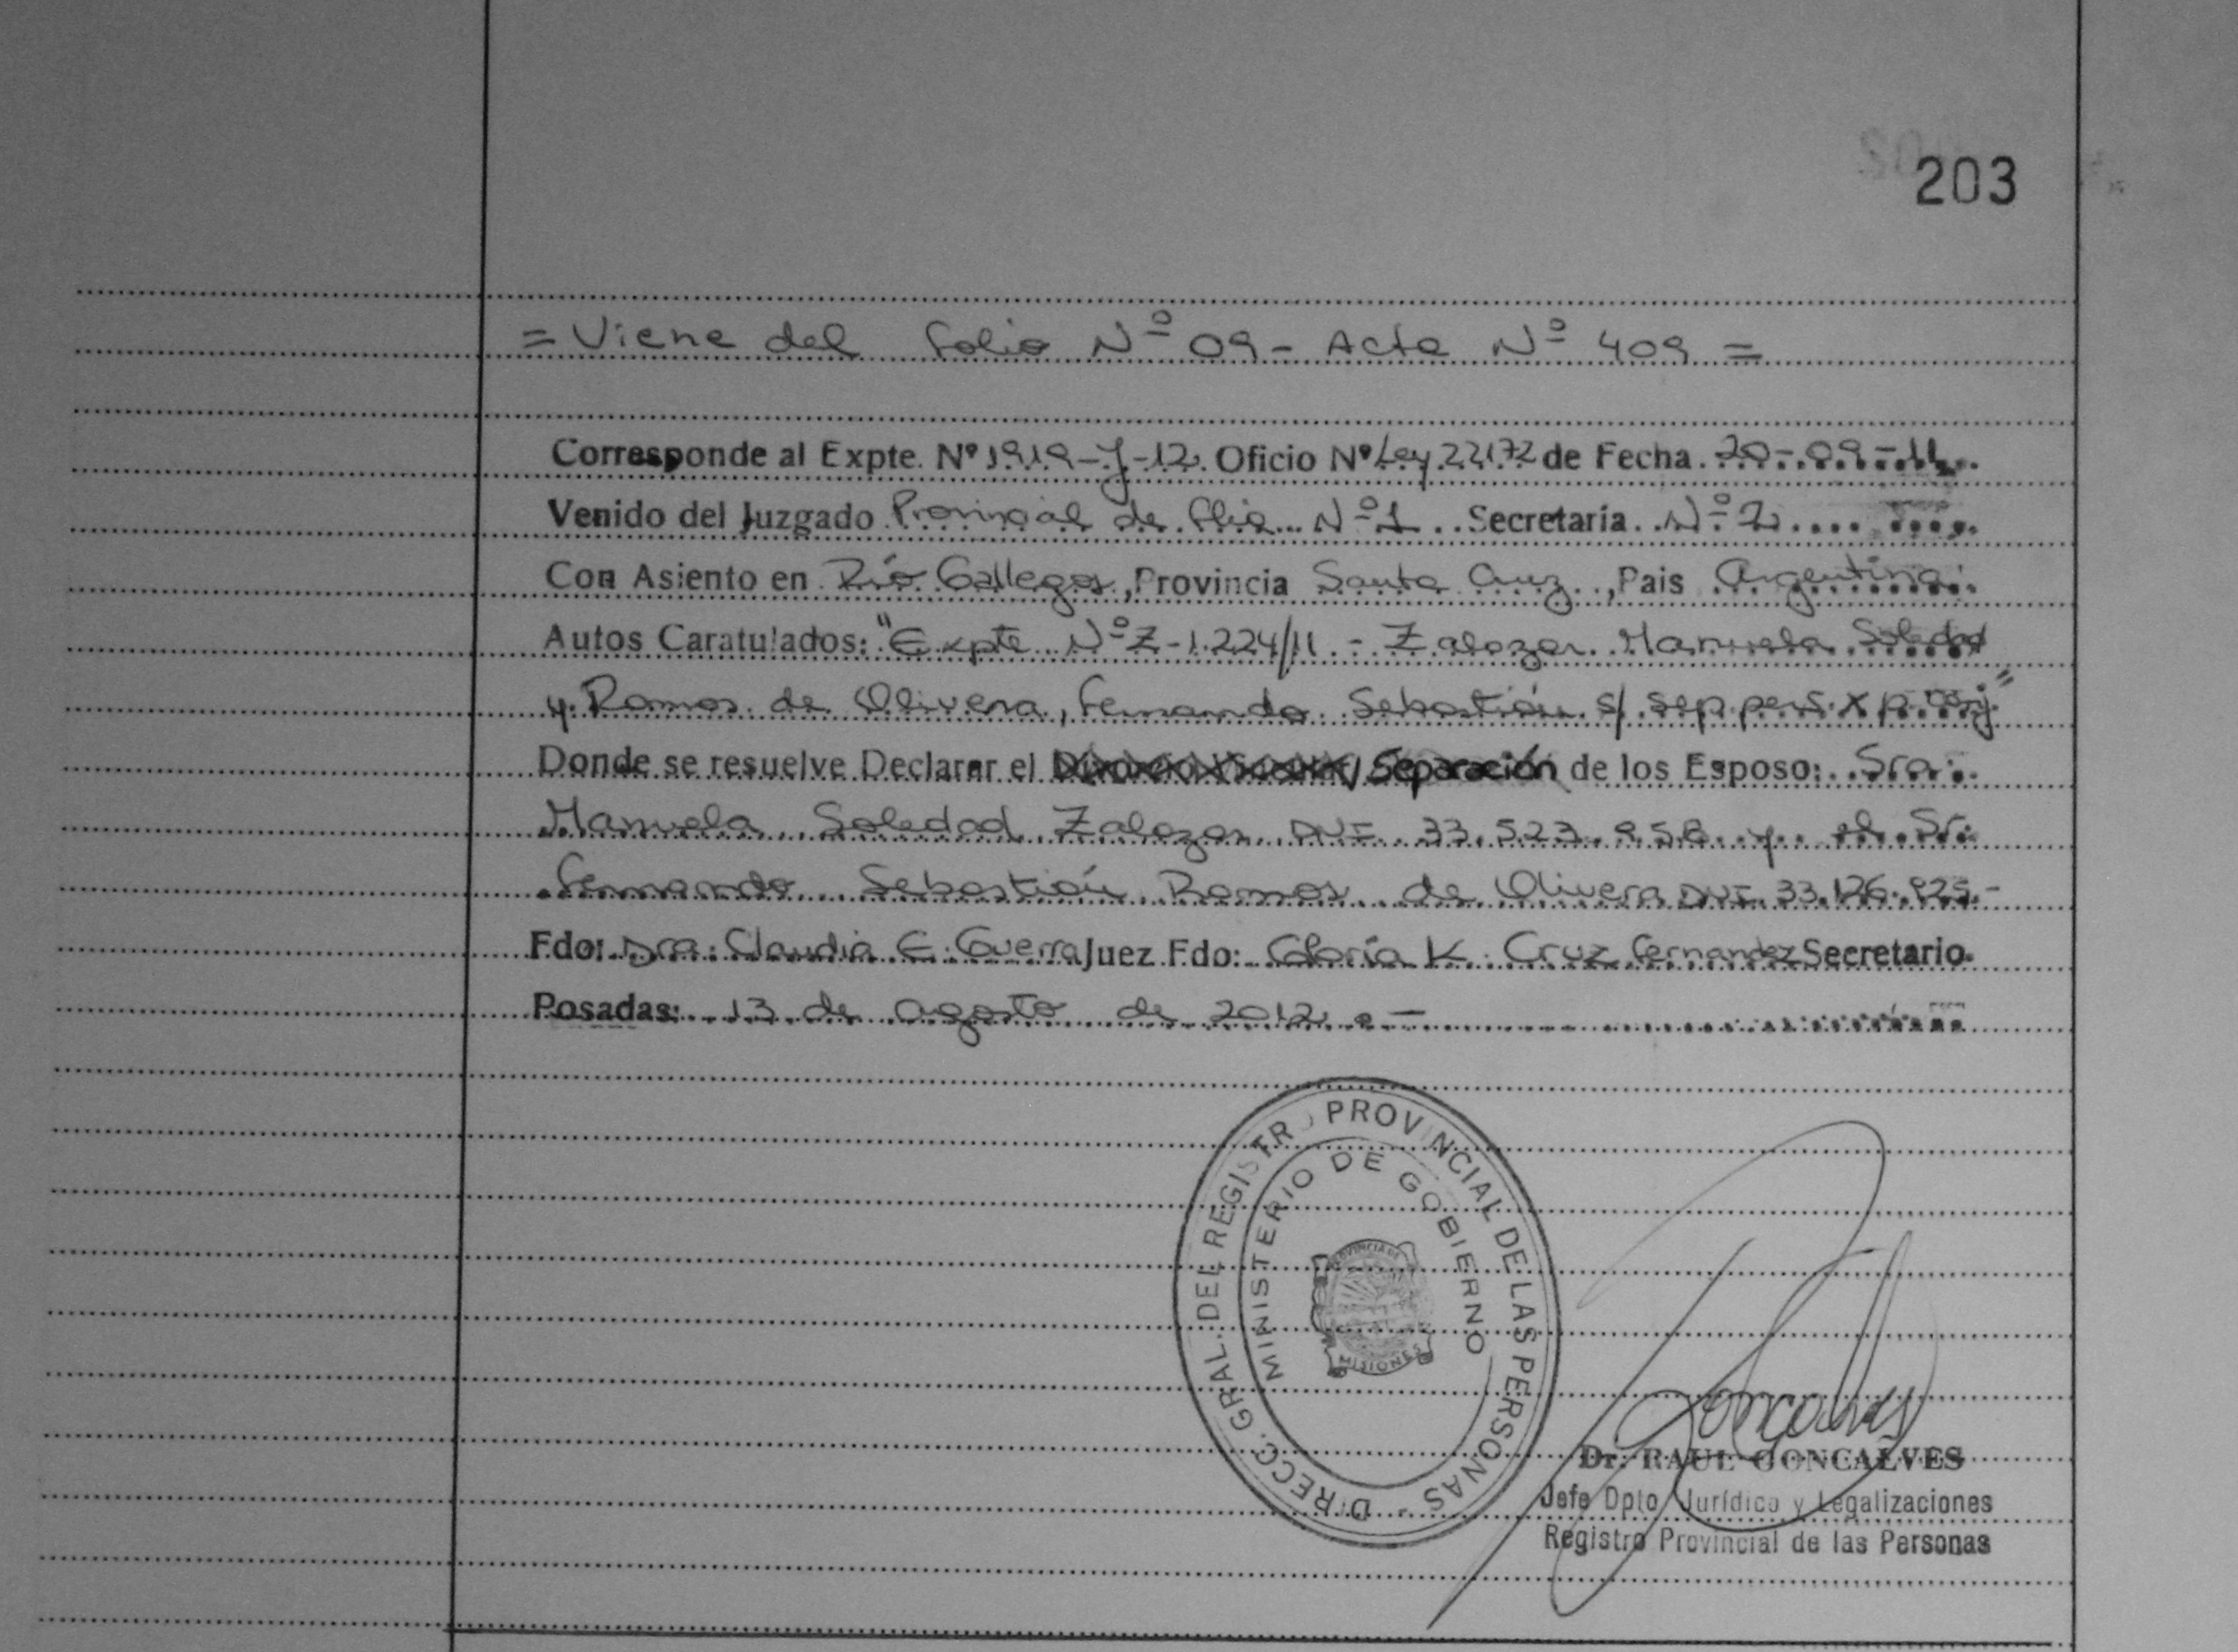 203
= Viene del folio Nº 09 - Acta Nº 409 =
Corresponde al Expte. Nº 1919-J-12. Oficio Nº Ley 22172 de Fecha 20-09-11
Venido del Juzgado Provincial de flia Nº 1 Secretaría Nº 2
Con Asiento en Río Gallegos, Provincia Santa Cruz, Pais Argentina
Autos Caratulados: "Expte Nº Z-1.224/11 - Zalazar Manuela Soledad
y Ramos de Olivera, Fernando Sebastián s/ sep. pers. x p. conj."
Donde se resuelve Declarar el Separación de los Esposo: Sra.
Manuela Soledad Zalazar DNI 33.523.958 y el Sr.
Fernando Sebastián Ramos de Olivera DNI 33.126.925.-
Fdo: Dra. Claudia E. Guerra Juez Fdo: Gloria K. Cruz Fernandez Secretario.
Posadas: 13 de agosto de 2012.-
DIRECC. GRAL. DEL REGISTRO PROVINCIAL DE LAS PERSONAS -
MINISTERIO DE GOBIERNO
PROVINCIA DE
MISIONES
Goncalves
Dr. RAUL GONCALVES
Jefe Dpto Jurídico y Legalizaciones
Registro Provincial de las Personas